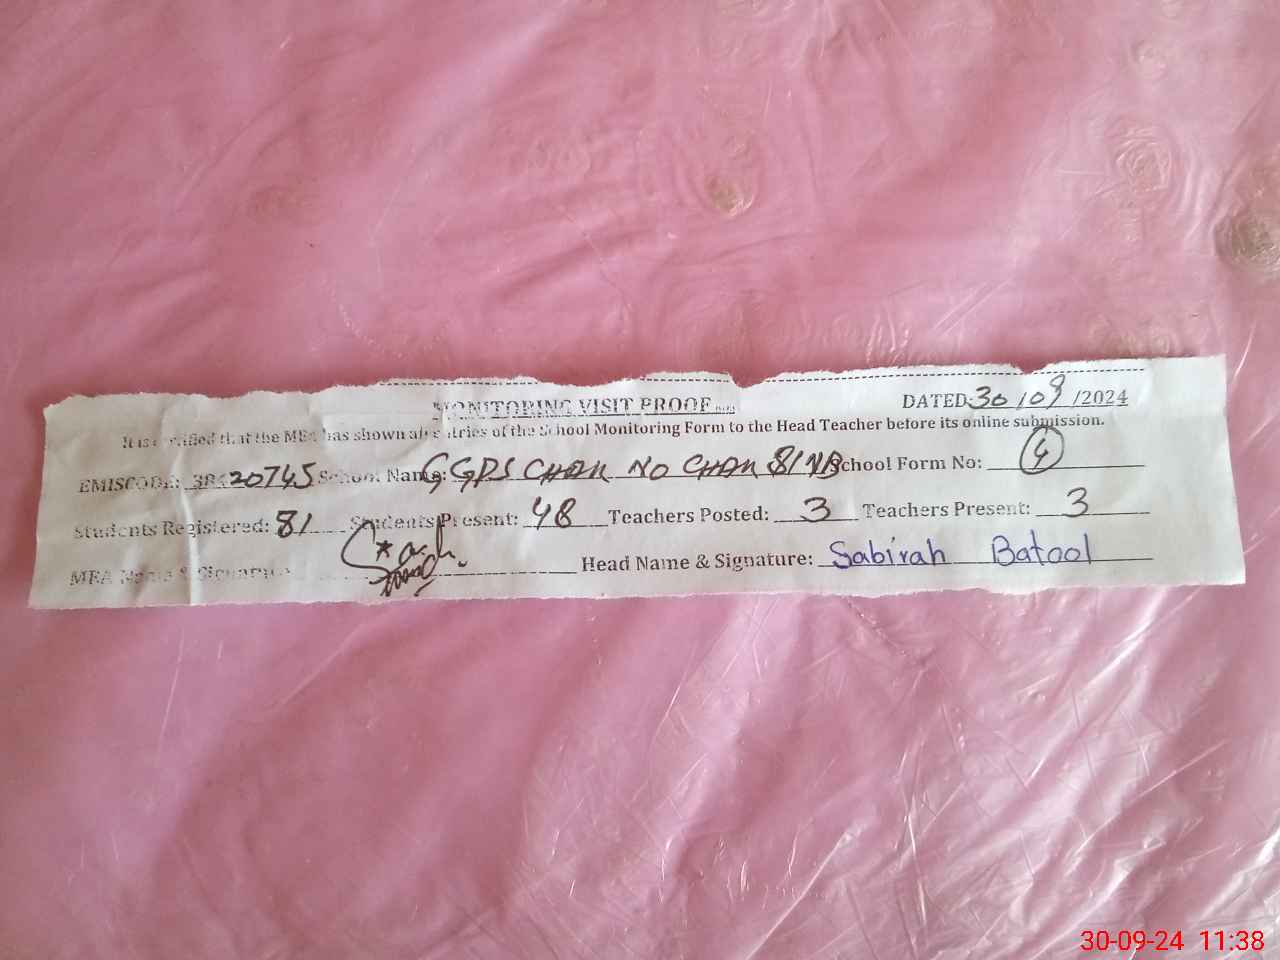 MONITORING VISIT PROOF DATED: 30/09/2024
It is certified that the MEA has shown all entries of the School Monitoring Form to the Head Teacher before its online submission.
EMISCODE: 38420745 School Name: GGPS CHAK NO CHAK 81 NB School Form No: 4
Students Registered: 81 Students Present: 48 Teachers Posted: 3 Teachers Present: 3
MEA Name & Signature: Head Name & Signature: Sabirah Batool
30-09-24 11:38